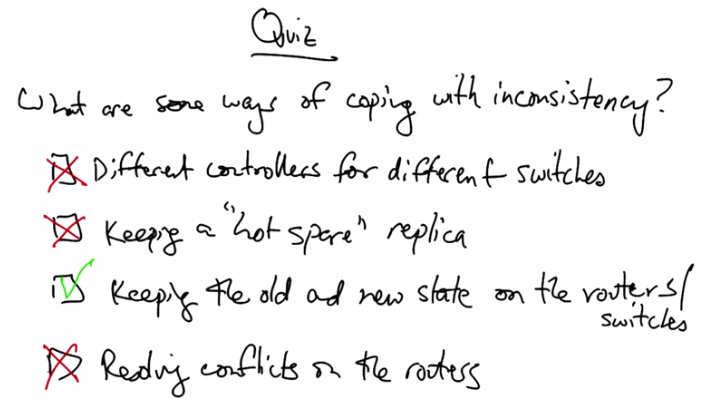 Quiz
What are some ways of coping with inconsistency?
Different controllers for different switches
Keeping a "hot spare" replica
Keeping the old and new state on the routers/
switches
Resolving conflicts on the routers